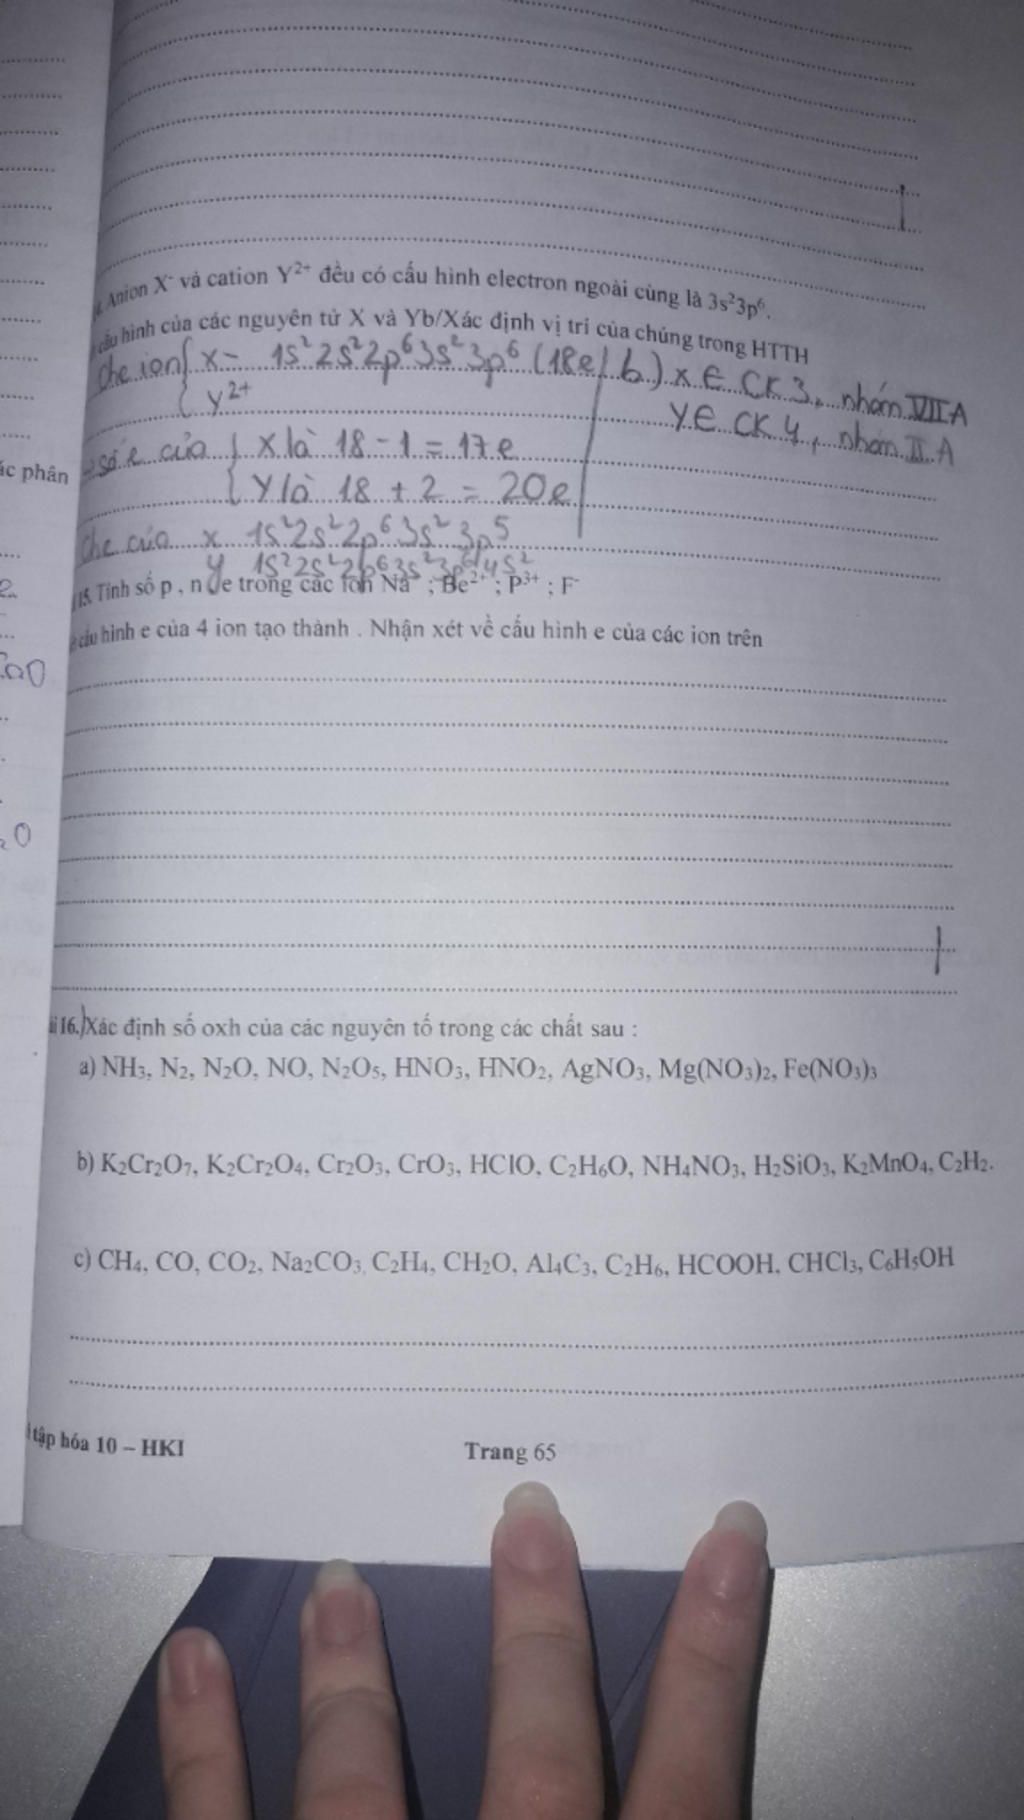 Anion X⁻ và cation Y²⁺ đều có cấu hình electron ngoài cùng là 3s²3p⁶.
cấu hình của các nguyên tử X và Yb/Xác định vị trí của chúng trong HTTH
Che ion { X⁻ 1s²2s²2p⁶3s²3p⁶ (18e) b) X ∈ CK3, nhóm VIIA
Y²⁺ Y ∈ CK4, nhóm IIA
→ số e của { X là 18 - 1 = 17e
Y là 18 + 2 = 20e
Che của X 1s²2s²2p⁶3s²3p⁵
Y 1s²2s²2p⁶3s²3p⁶4s²
15. Tính số p, n, e trong các ion Na⁺ ; Be²⁺ ; P³⁺ ; F⁻
cấu hình e của 4 ion tạo thành . Nhận xét về cấu hình e của các ion trên
16. Xác định số oxh của các nguyên tố trong các chất sau :
a) NH₃, N₂, N₂O, NO, N₂O₅, HNO₃, HNO₂, AgNO₃, Mg(NO₃)₂, Fe(NO₃)₃
b) K₂Cr₂O₇, K₂Cr₂O₄, Cr₂O₃, CrO₃, HClO, C₂H₆O, NH₄NO₃, H₂SiO₃, K₂MnO₄, C₂H₂.
c) CH₄, CO, CO₂, Na₂CO₃, C₂H₄, CH₂O, Al₄C₃, C₂H₆, HCOOH, CHCl₃, C₆H₅OH
tập hóa 10 – HKI Trang 65
phân